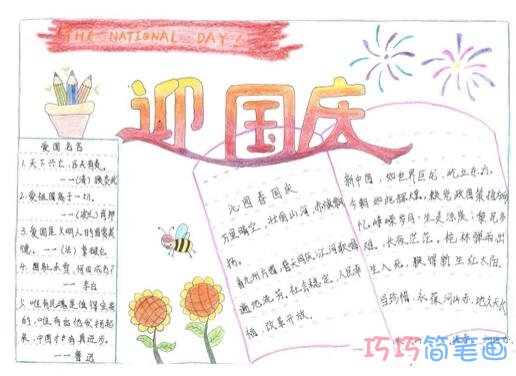 THE NATIONAL DAY!
迎国庆
爱国名言
1.天下兴亡,匹夫有责。
——(清)顾炎武
2.爱祖国高于一切。
——(波兰)肖邦
3.爱国是文明人的首要美
德。——(法)拿破仑
4.国耻未雪,何由成名?
——李白
5.唯有民魂是值得宝贵
的,唯有他发扬起
来,中国才有真进步。
——鲁迅
沁园春国庆
万里晴空,壮丽山河,赤旗飘
扬。
看九州方圆,普天同庆;江河歌唱
遍地流芳。社会稳定,人民幸
福,改革开放。
新中国,如世界巨龙,屹立东方。
今朝灿烂辉煌,赖党政国策
忆峥嵘岁月,生灵涂炭;黎民多
长夜茫茫。枪林弹雨,出
生入死,换得新生红太阳。
当珍惜,永葆河山赤,地久天长
巧巧简笔画